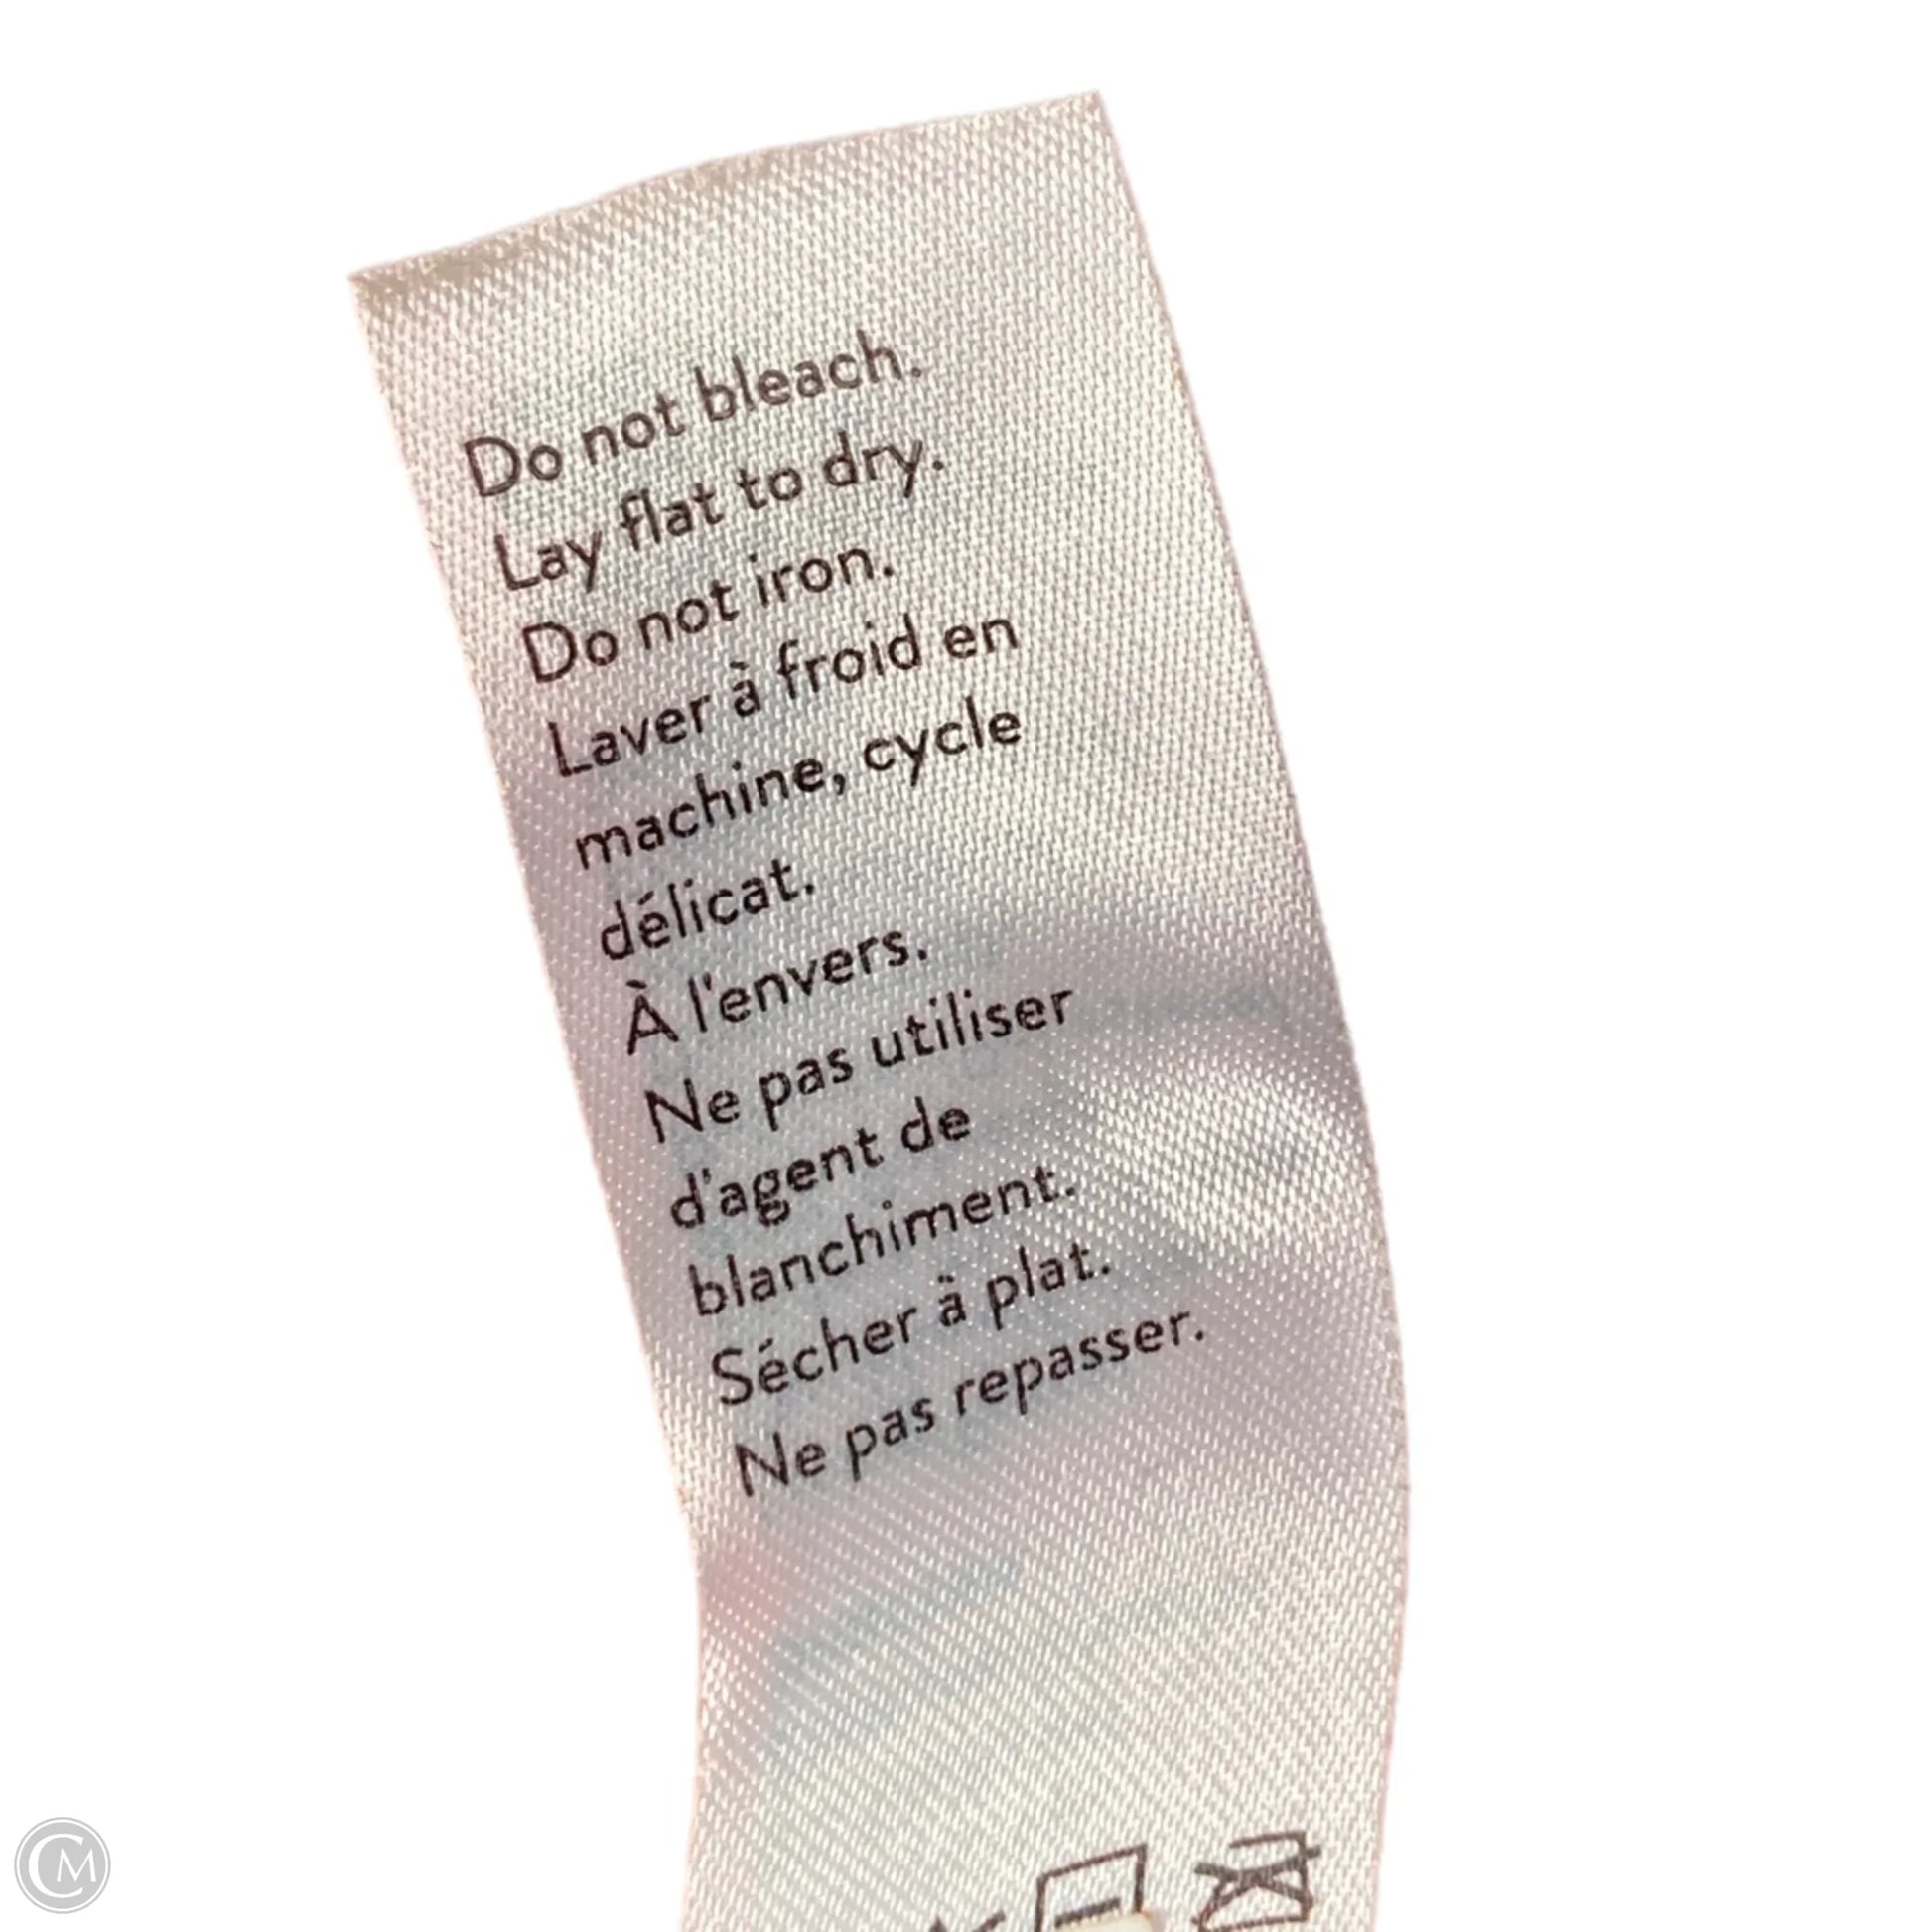 Do not bleach.
Lay flat to dry.
Do not iron.
Laver à froid en
machine, cycle
délicat.
À l'envers.
Ne pas utiliser
d'agent de
blanchiment.
Sécher à plat.
Ne pas repasser.
CM